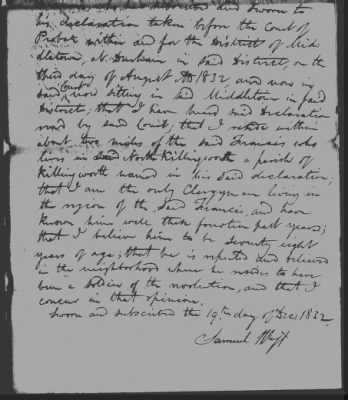 his declaration taken before the Court of
Probate within and for the District of Mid-
dletown, at Durham in said District, on the
third day of August AD 1832, and now in
said Court now sitting in said Middletown in said
District; that I have heard said Declaration
read by said Court, that I reside within
about two miles of the said Francis who
lives in said North Killingworth a parish of
Killingworth named in his said declaration;
that I am the only Clergyman living in
the region of the said Francis, and have
known him well these fourteen past years;
that I believe him to be seventy eight
years of age; that he is reputed and believed
in the neighborhood where he resides to have
been a soldier of the revolution, and that I
concur in that opinion.
Sworn and subscribed the 19th day of Dec. 1832.
Samuel